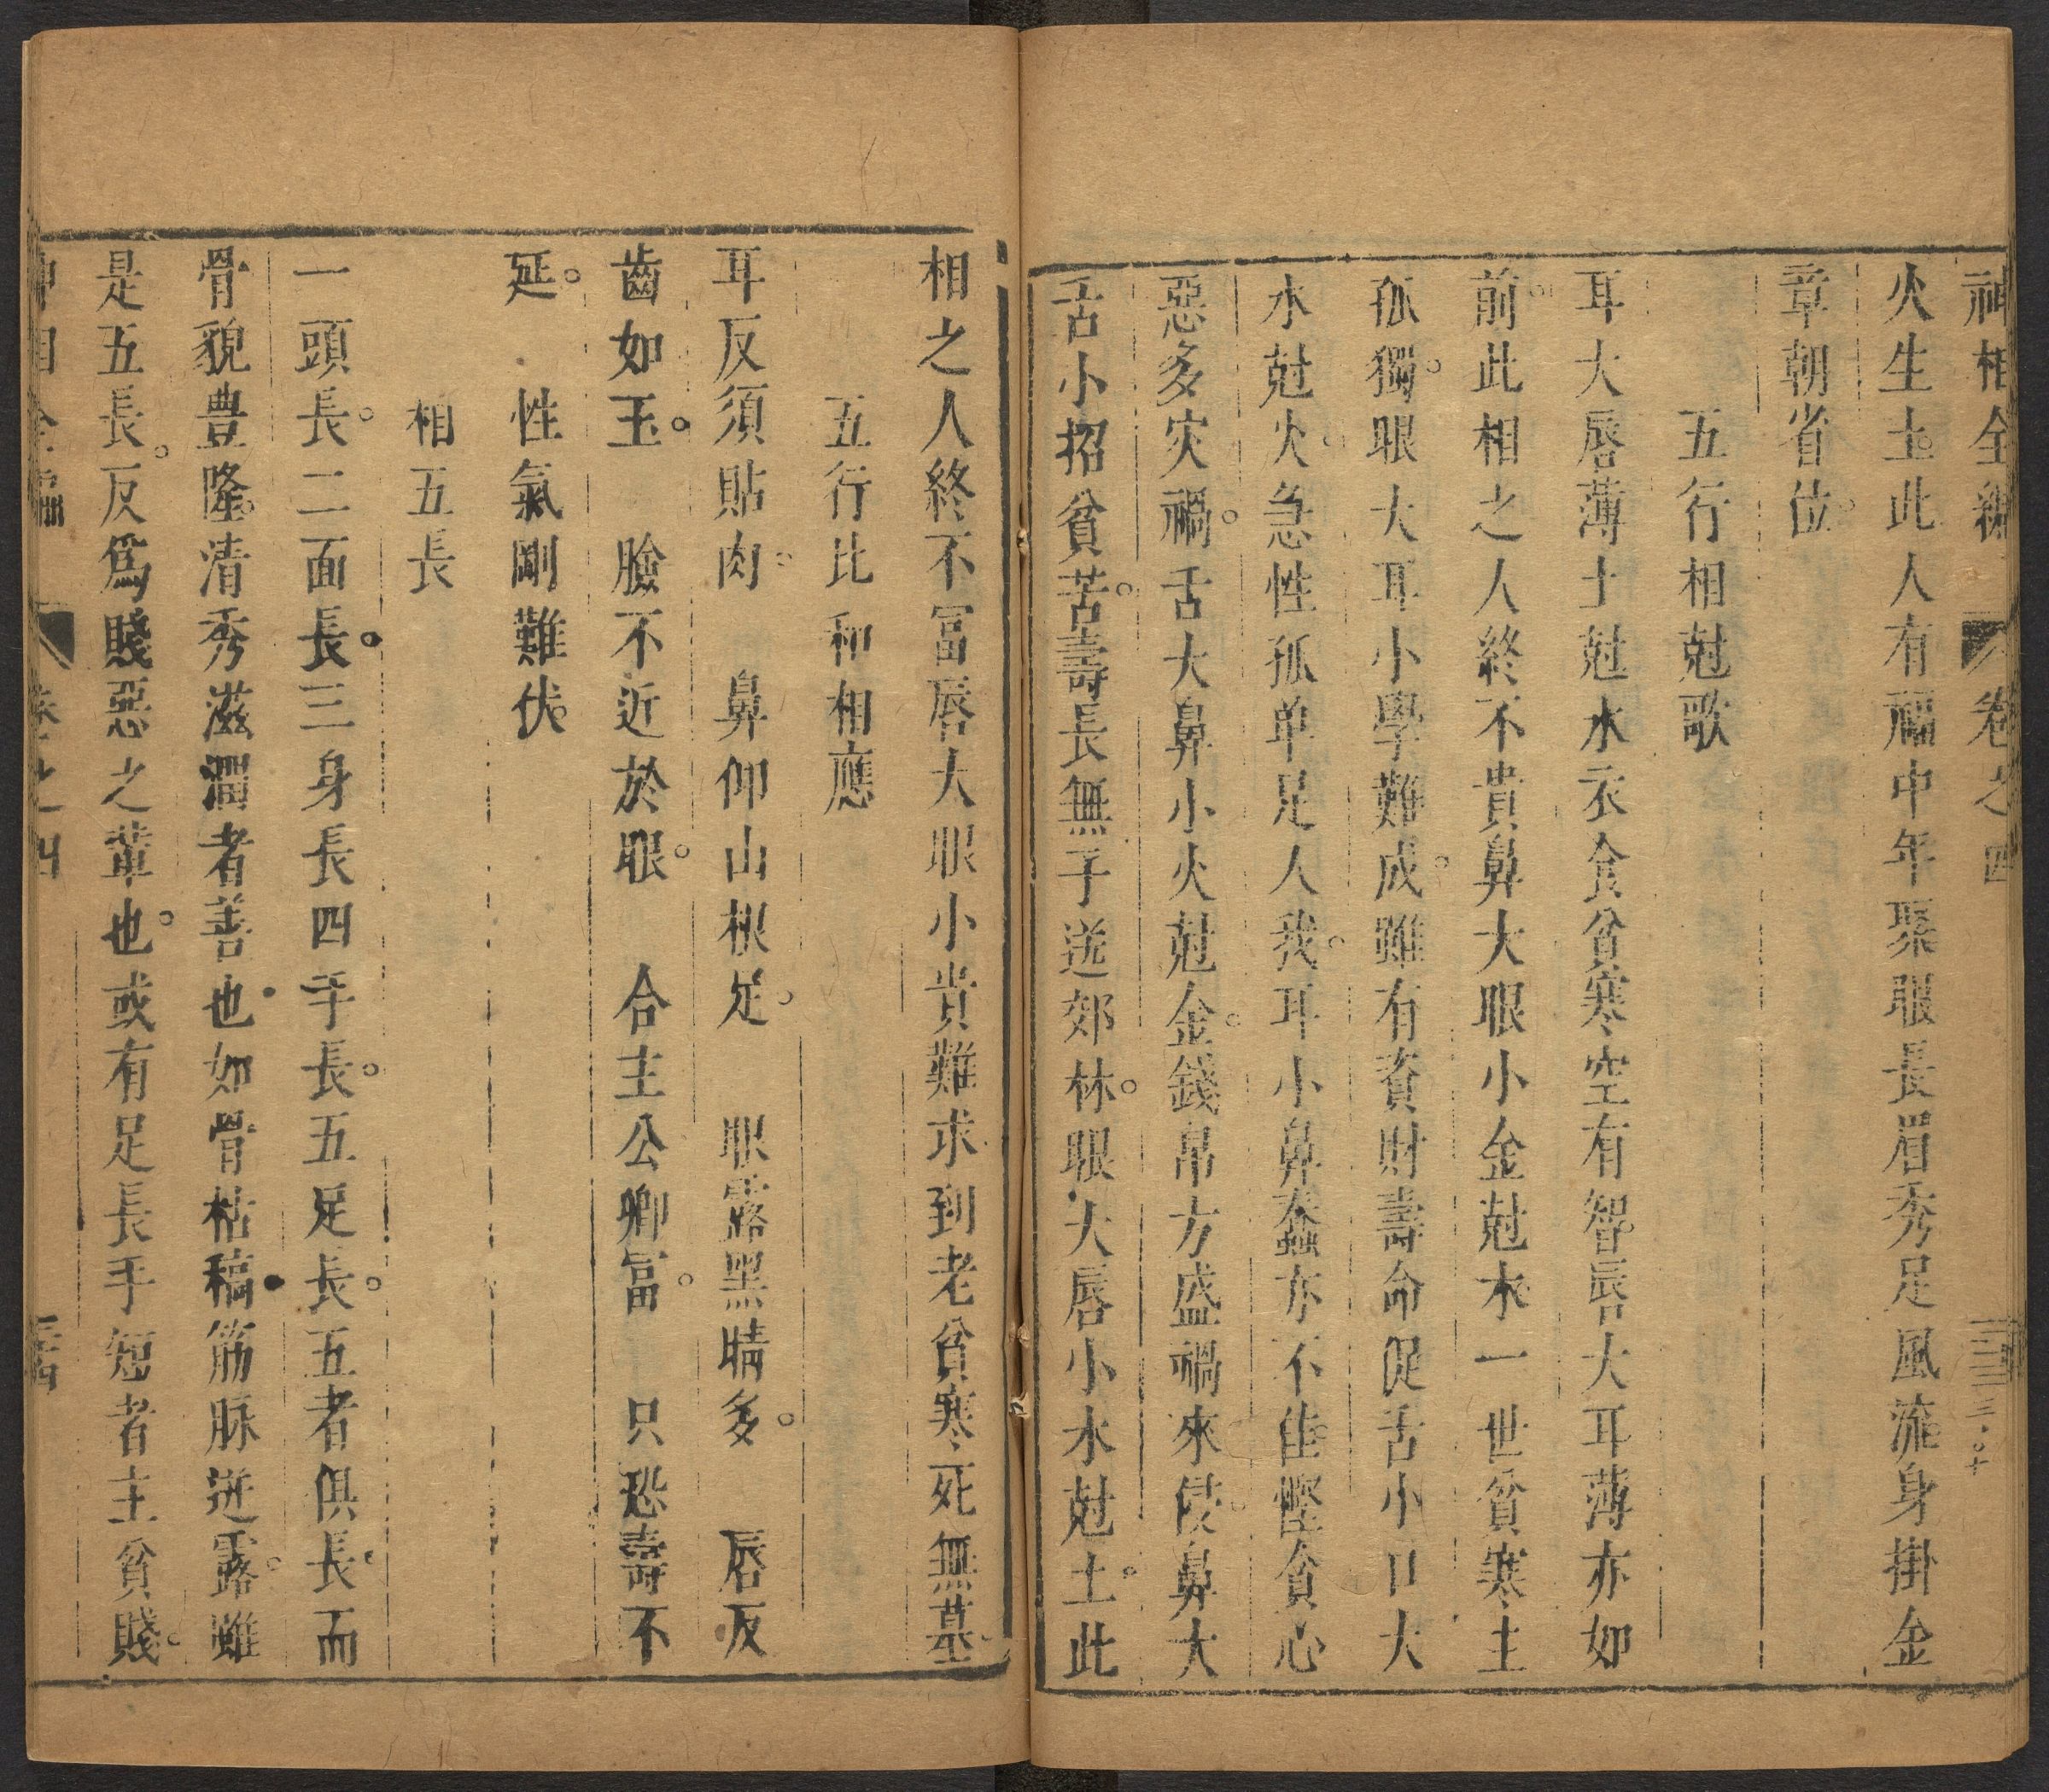 神相全編 卷之四
火生土此人有福中年聚眼長眉秀足風流身掛金
章朝省位
五行相尅歌
耳大唇薄土尅水衣食貧寒空有智唇大耳薄亦如
前此相之人終不貴鼻大眼小金尅木一世貧寒主
孤獨眼大耳小學難成雖有資財壽命促舌小口大
水尅火急性孤单足人我耳小鼻蠢亦不佳慳貪心
惡多灾禍舌大鼻小火尅金錢帛方盛禍來侵鼻大
舌小招貧苦壽長無子送郊林眼大唇小木尅土此
相之人終不冨唇大眼小貴難求到老貧寒死無墓
五行比和相應
耳反須貼肉 鼻仰山根足 眼露黑睛多 唇反
齒如玉 臉不近於眼 合主公卿冨 只恐壽不
延 性氣剛難伏
相五長
一頭長二面長三身長四手長五足長五者俱長而
骨貌豊隆清秀滋潤者善也如骨枯稿筋脉迸露雖
是五長反爲賤惡之輩也或有足長手短者主貧賤
卷之四